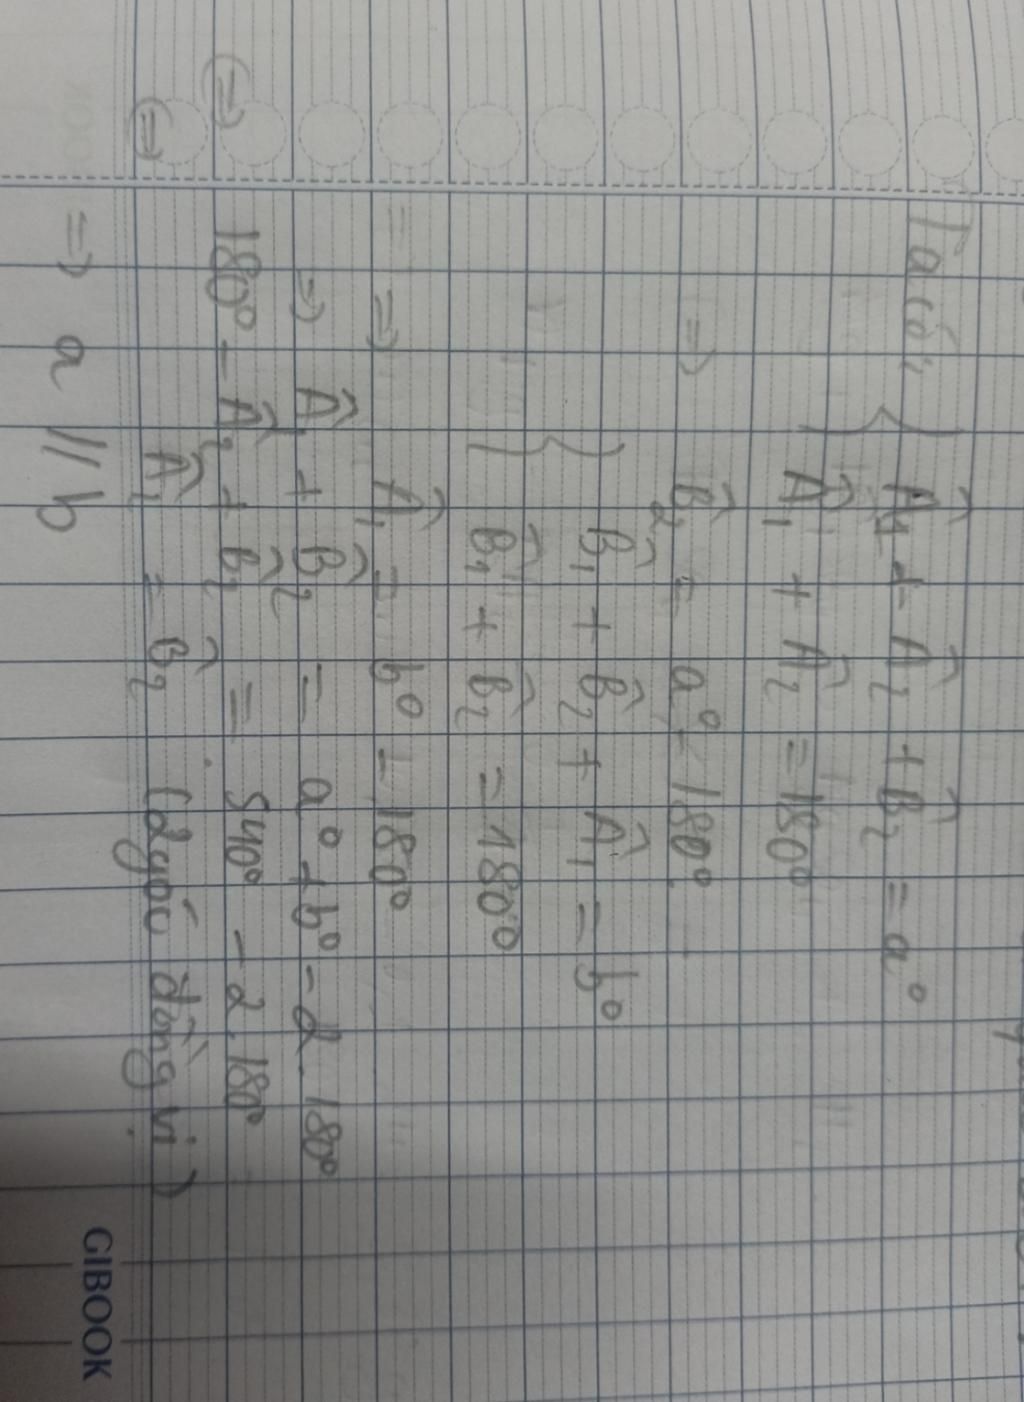 Ta có: { Â1 + Â2 + B̂2 = a°
Â1 + Â2 = 180°
=> B̂2 = a° - 180°
{ B̂1 + B̂2 + Â1 = b°
B̂1 + B̂2 = 180°
=> Â1 = b° - 180°
=> Â1 + B̂2 = a° + b° - 2.180°
(=>) 180° - Â2 + B̂2 = 540° - 2.180°
(=>) Â1 = B̂2 (2 góc đồng vị)
=> a // b
GIBOOK